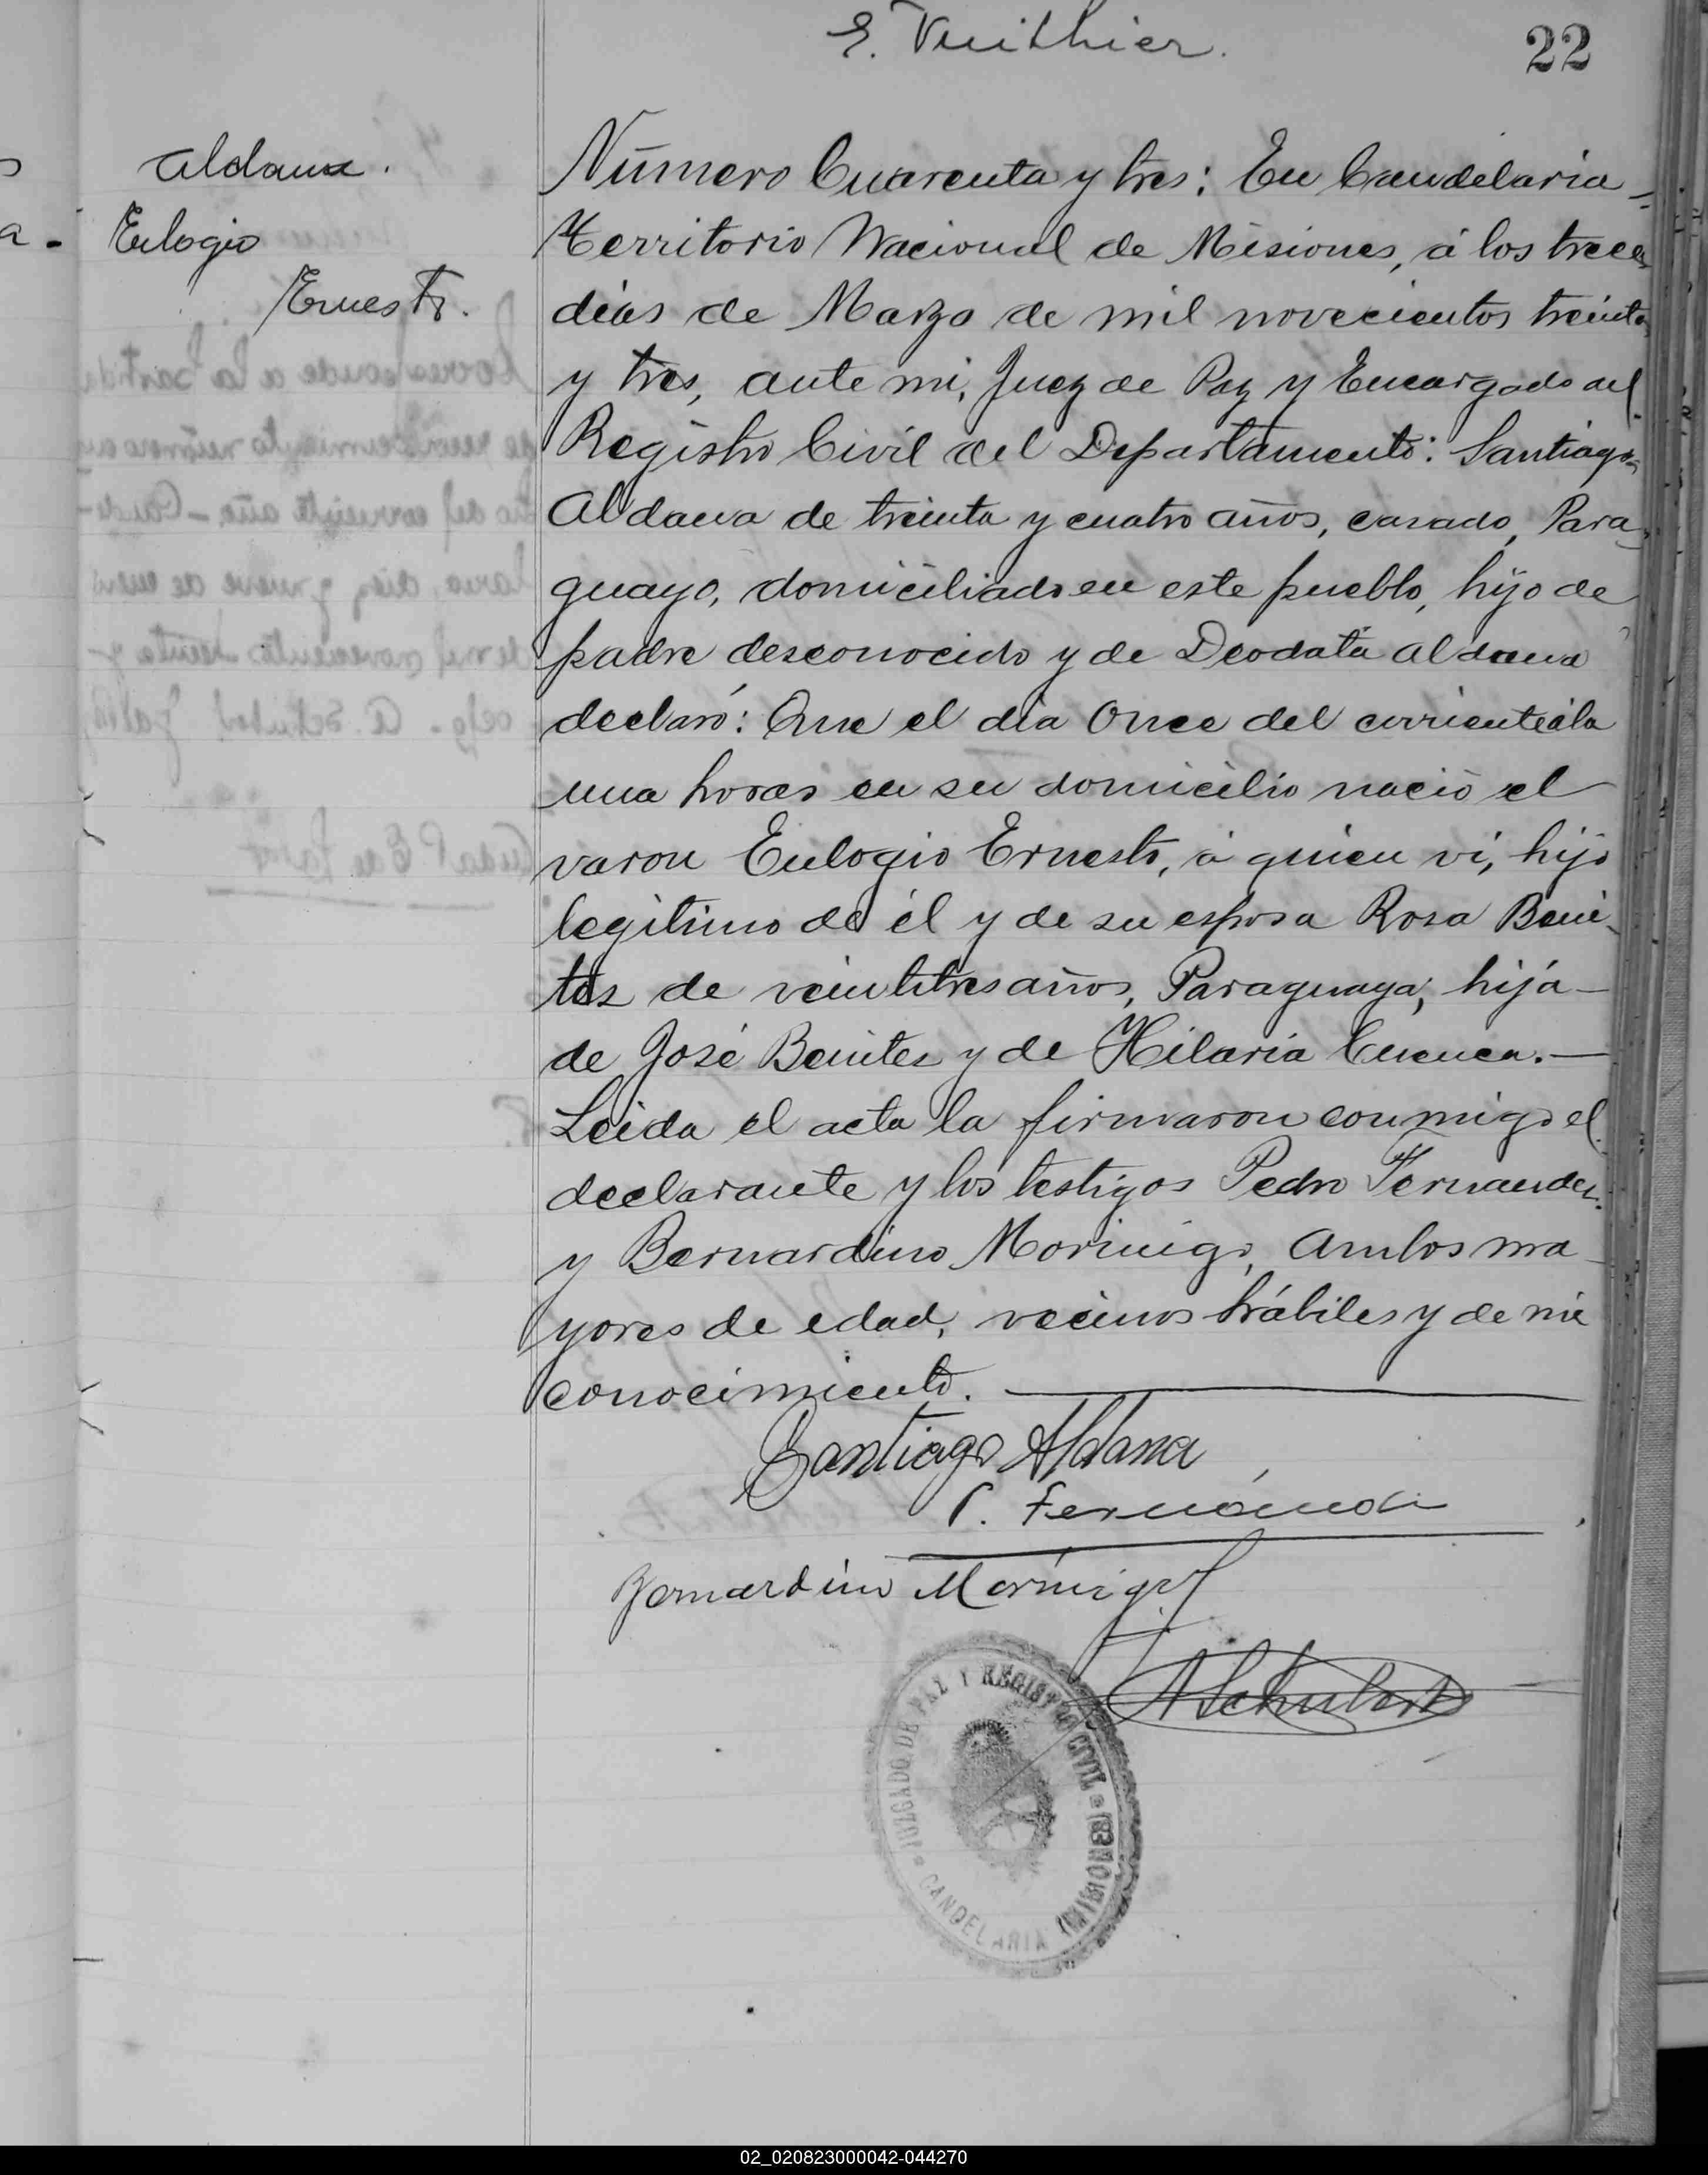 E. Vuithier.
22
Aldana.
Eulogio
Ernesto.
Número Cuarenta y tres: En Candelaria
Territorio Nacional de Misiones, á los trece
dias de Marzo de mil novecientos treinta
y tres, ante mi, Juez de Paz y Encargado del
Registro Civil del Departamento: Santiago
Aldana de treinta y cuatro años, casado, Para
guayo, domiciliado en este pueblo, hijo de
padre desconocido y de Deodata Aldana
declaró: Que el dia Once del corriente á la
una horas en su domicilio nació el
varon Eulogio Ernesto, á quien vi, hijo
legitimo de él y de su esposa Rosa Beni-
tes de veintitres años, Paraguaya, hija
de José Benites y de Hilaria Cuenca.—
Leida el acta la firmaron conmigo el
declarante y los testigos Pedro Fernandez
y Bernardino Morinigo, Ambos ma
yores de edad, vecinos hábiles y de mi
conocimiento.
Santiago Aldana
P. Fernández
Bernardino Morinigo
A Schubert
JUZGADO DE PAZ Y REGISTRO CIVIL
CANDELARIA (MISIONES)
02_020823000042-044270